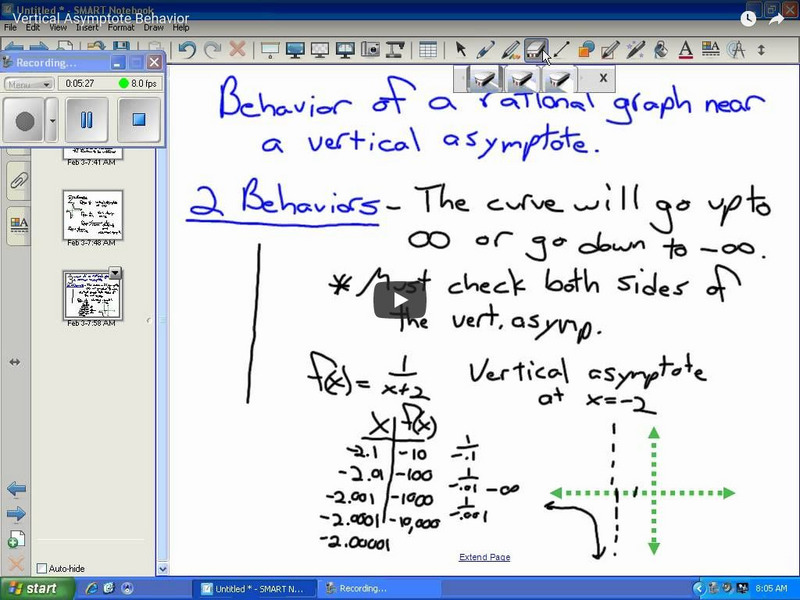 Untitled * - SMART Notebook
Vertical Asymptote Behavior
File Edit View Insert Format Draw Help
Recording...
0:05:27 8.0 fps
Menu
x
Feb 3-7:41 AM
Feb 3-7:48 AM
Feb 3-7:58 AM
Behavior of a rational graph near
a vertical asymptote.
2 Behaviors - The curve will go up to
∞ or go down to -∞.
* Must check both sides of
the vert. asymp.
f(x) = 1/(x+2) Vertical asymptote
at x=-2
x f(x)
-2.1 -10 1/-.1
-2.01 -100 1/-.01 -∞
-2.001 -1000 1/-.001
-2.0001 -10,000
-2.00001
Extend Page
Auto-hide
start
Untitled * - SMART N...
Recording...
8:05 AM